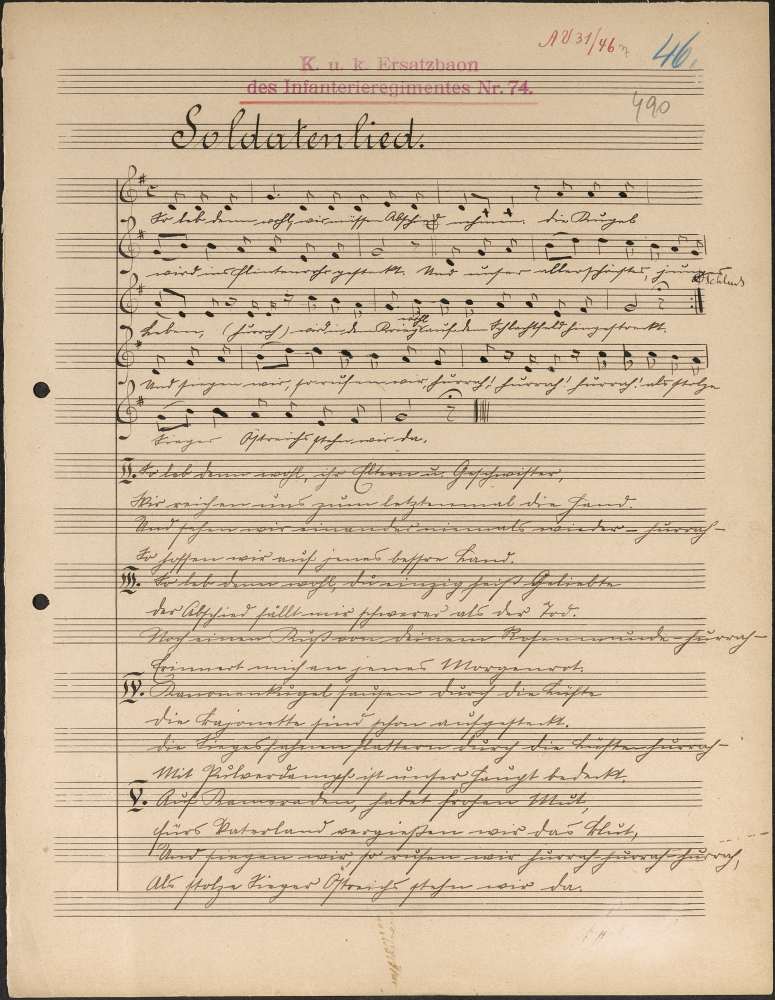 AV 31/46
46.
K. u. k. Ersatzbaon
des Infanterieregimentes Nr. 74.
490
Soldatenlied.
So leb denn wohl, wir müssen Abschied nehmen. die Kugel
wird ins Flintenrohr gesteckt. Und unser allerschönstes, junges
Schluß
Leben, (hurrah) wird in dem Krieg wohl auf dem Schlachtfeld hingestreckt.
Und siegen wir, so rufen wir, hurrah! hurrah! hurrah! als stolze
Sieger Östreichs stehn wir da.
II. So leb denn wohl, ihr Eltern u. Geschwister,
Wir reichen uns zum letztenmal die Hand.
Und sehen wir einander niemals wieder – hurrah –
So hoffen wir auf jenes bessre Land.
III. So leb denn wohl, du einzig heiß Geliebte
der Abschied fällt mir schwerer als der Tod.
Noch einen Kuß von deinem Rosenmunde – hurrah –
Erinnert mich an jenes Morgenrot.
IV. Kanonenkugel sausen durch die Lüfte
die Bajonette sind schon aufgesteckt.
die Siegesfahnen flattern durch die Lüfte – hurrah –
Mit Pulverdampf ist unser Haupt bedeckt.
V. Auf Kameraden, habet frohen Mut,
fürs Vaterland vergießen wir das Blut,
Und siegen wir so rufen wir hurrah-hurrah-hurrah,
Als stolze Sieger Östreichs stehn wir da.